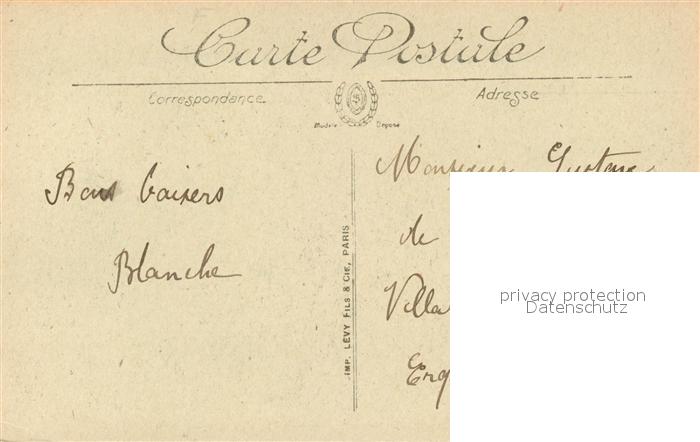 Carte Postale
Correspondance
Adresse
Modèle Déposé
Bons baisers
Blanche
IMP. LÉVY FILS & CIE, PARIS
Monsieur Gustave
de
Villa
privacy protection
Datenschutz